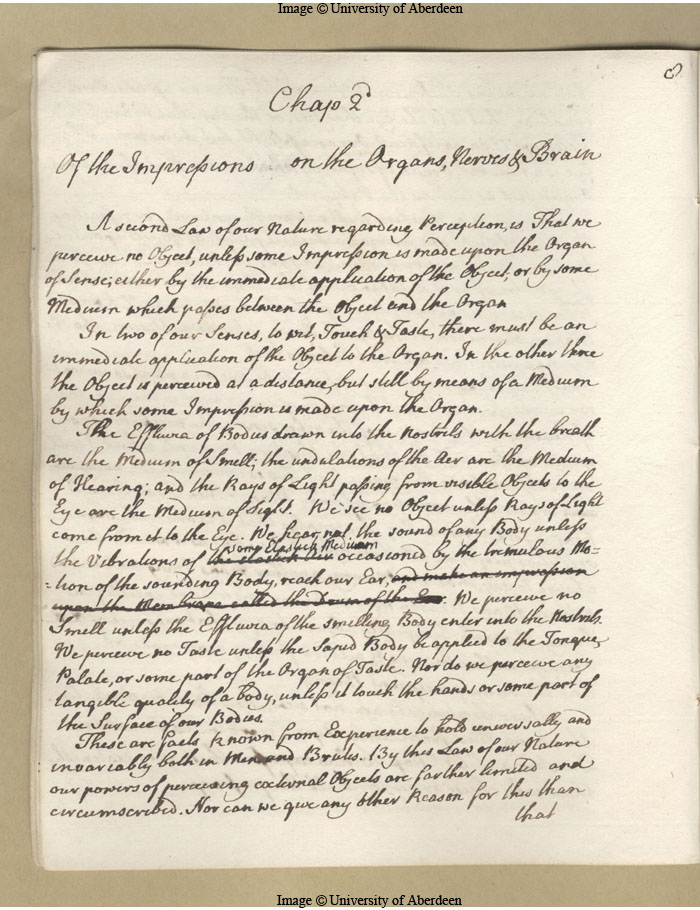 Image © University of Aberdeen
8
Chap 2d
Of the Impressions on the Organs, Nerves & Brain
A second Law of our Nature regarding Perception, is That we
perceive no Object, unless some Impression is made upon the Organ
of Sense; either by the immediate application of the Object, or by some
Medium which passes between the Object and the Organ
In two of our Senses, to wit, Touch & Taste, there must be an
immediate application of the Object to the Organ. In the other three
the Object is perceived at a distance, but still by means of a Medium
by which some Impression is made upon the Organ.
The Effluvia of Bodies drawn into the Nostrils with the breath
are the Medium of Smell; the undulations of the Aer are the Medium
of Hearing; and the Rays of Light passing from visible Objects to the
Eye are the Medium of Sight. We see no Object unless Rays of Light
come from it to the Eye. We hear not the sound of any Body unless
some Elastick Medium
the Vibrations of the elastick Aer occasioned by the tremulous Mo=
=tion of the sounding Body, reach our Ear, and make an impression
upon the Membrane called the Drum of the Ear. We perceive no
Smell unless the Effluvia of the smelling Body enter into the Nostrils.
We perceive no Taste unless the Sapid Body be applied to the Tongue,
Palate, or some part of the Organ of Taste. Nor do we perceive any
tangible quality of a body, unless it touch the hands or some part of
the Surface of our Bodies.
These are facts known from Experience to hold universally and
invariably both in Men and Brutes. By this Law of our Nature
our powers of perceiving external Objects are farther limited and
circumscribed. Nor can we give any other Reason for this than
that
Image © University of Aberdeen